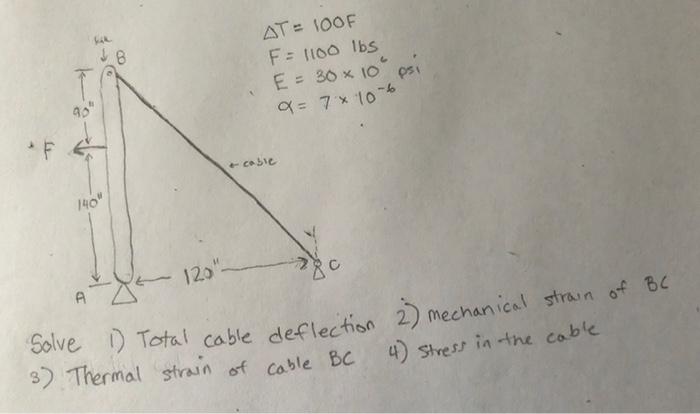 ΔT = 100F
F = 1100 lbs
E = 30 × 10⁶ psi
α = 7 × 10⁻⁶
B
90"
F
← cable
140"
120"
C
A
Solve 1) Total cable deflection 2) mechanical strain of BC
3) Thermal strain of cable BC 4) Stress in the cable